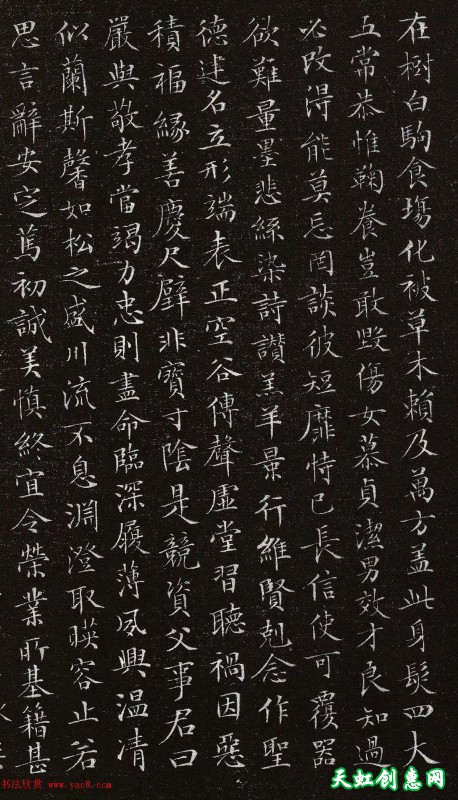 在樹白駒食場化被草木賴及萬方盖此身髮四大
五常恭惟鞠養豈敢毀傷女慕貞潔男效才良知過
必改得能莫忘罔談彼短靡恃己長信使可覆器
欲難量墨悲絲染詩讚羔羊景行維賢剋念作聖
德建名立形端表正空谷傳聲虛堂習聽禍因惡
積福緣善慶尺璧非寶寸陰是競資父事君曰
嚴與敬孝當竭力忠則盡命臨深履薄夙興溫凊
似蘭斯馨如松之盛川流不息淵澄取暎容止若
思言辭安定篤初誠美慎終宜令榮業所基籍甚
书法欣赏 www.yac8.com
天虹创惠网